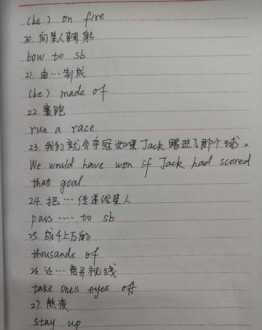 (be) on fire
20. 向某人鞠躬
bow to sb
21. 由…制成
(be) made of
22. 赛跑
run a race
23. 我们就会夺冠如果Jack踢进了那个球。
We would have won if Jack had scored
that goal
24. 把…传递给某人
pass … to sb
25. 成千上万的
thousands of
26. 让…离开视线
take one's eyes off
27. 熬夜
stay up